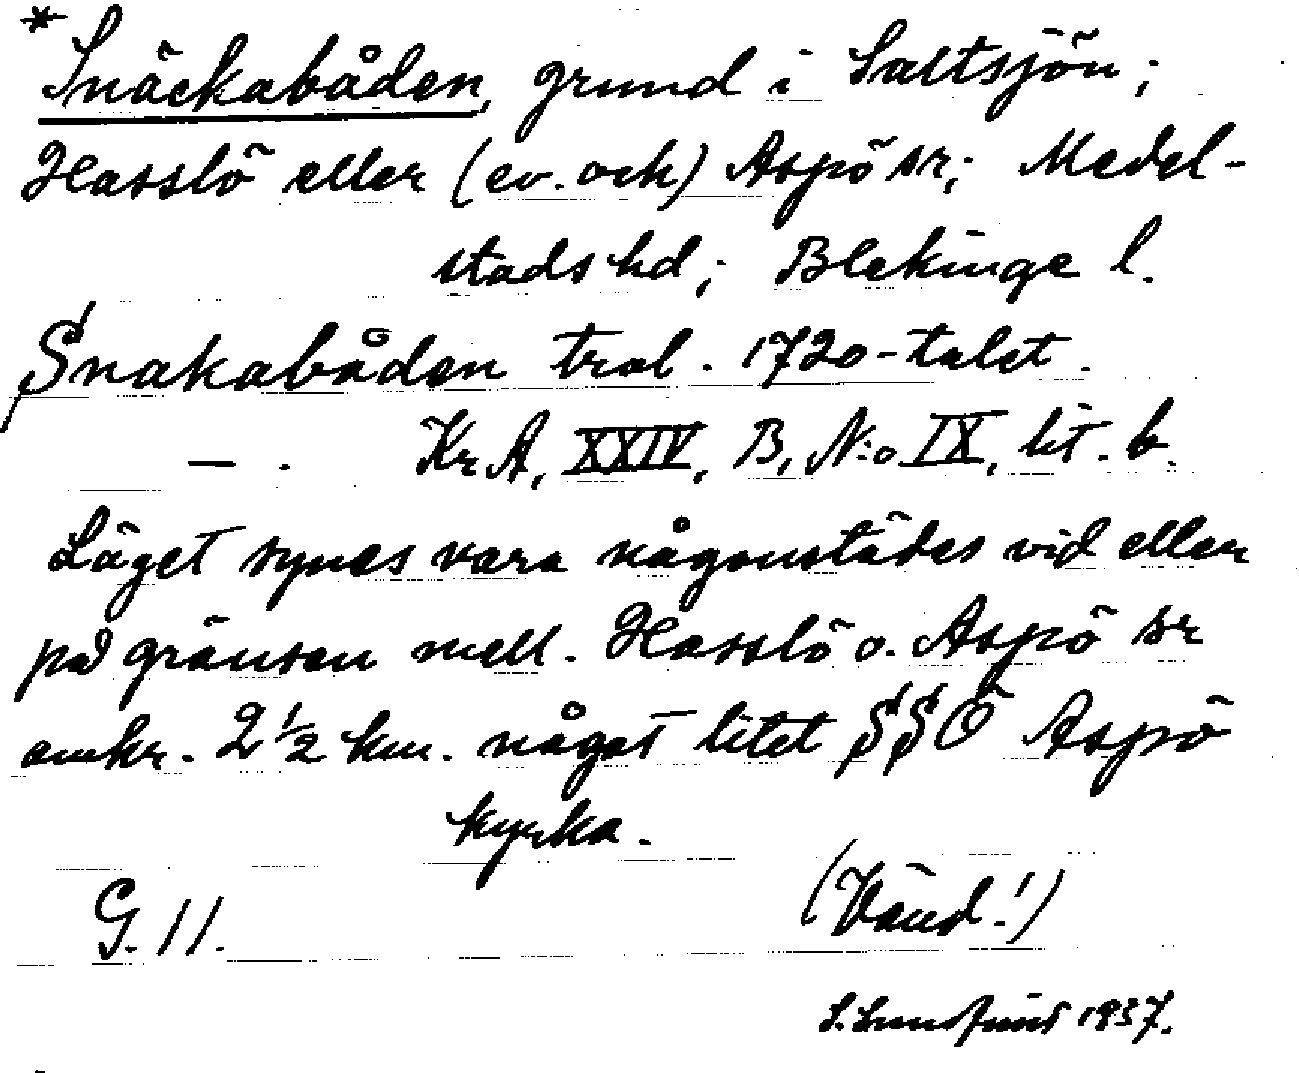 * Snäckabåden, grund i Saltsjön;
Hasslö eller (ev. och) Aspö sr; Medel-
stads hd; Blekinge l.
Snakabåden tral. 1720-talet.
— . KrA, XXIV, B, N:o IX, lit. b.
Läget synes vara någonstädes vid eller
på gränsen mell. Hasslö o. Aspö sr
omkr. 2 1/2 km. något litet SSÖ Aspö
kyrka.
G. 11. (Vänd!)
1937.